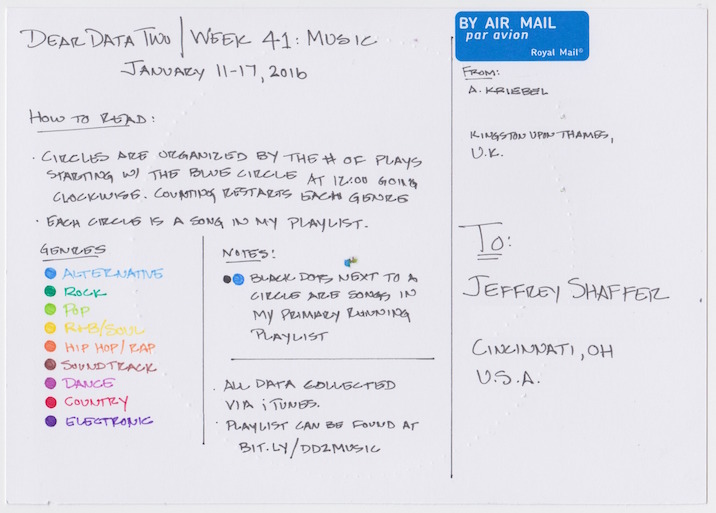 DEAR DATA TWO | WEEK 41: MUSIC
JANUARY 11-17, 2016
HOW TO READ:
· CIRCLES ARE ORGANIZED BY THE # OF PLAYS
STARTING W/ THE BLUE CIRCLE AT 12:00 GOING
CLOCKWISE. COUNTING RESTARTS EACH GENRE
· EACH CIRCLE IS A SONG IN MY PLAYLIST.
GENRES
ALTERNATIVE
ROCK
POP
R+B/SOUL
HIP HOP/RAP
SOUNDTRACK
DANCE
COUNTRY
ELECTRONIC
NOTES:
BLACK DOTS NEXT TO A
CIRCLE ARE SONGS IN
MY PRIMARY RUNNING
PLAYLIST
· ALL DATA COLLECTED
VIA iTUNES.
· PLAYLIST CAN BE FOUND AT
BIT.LY/DD2MUSIC
BY AIR MAIL
par avion
Royal Mail®
FROM:
A. KRIEBEL
KINGSTON UPON THAMES,
U.K.
TO:
JEFFREY SHAFFER
CINCINNATI, OH
U.S.A.